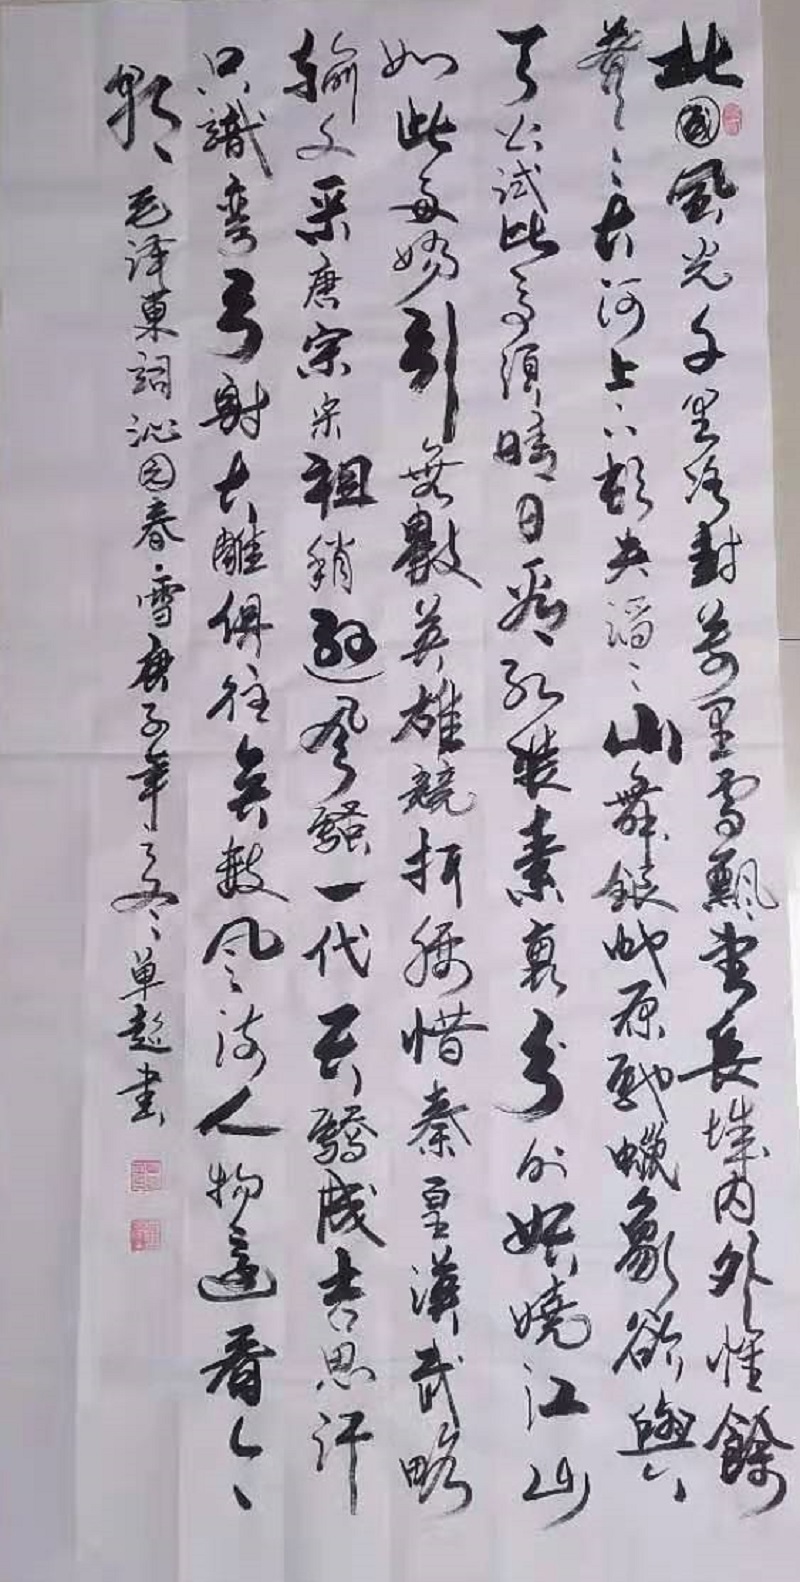 北國風光千里冰封萬里雪飄望長城内外惟餘
莽〻大河上下頓失滔〻山舞銀蛇原馳蠟象欲與
天公試比高須晴日看紅裝素裹分外妖嬈江山
如此多嬌引無數英雄競折腰惜秦皇漢武略
輸文采唐宗宋祖稍遜風騷一代天驕成吉思汗
只識彎弓射大雕俱往矣數風流人物還看今
朝 毛泽東詞沁园春雪庚子年之夏单超書